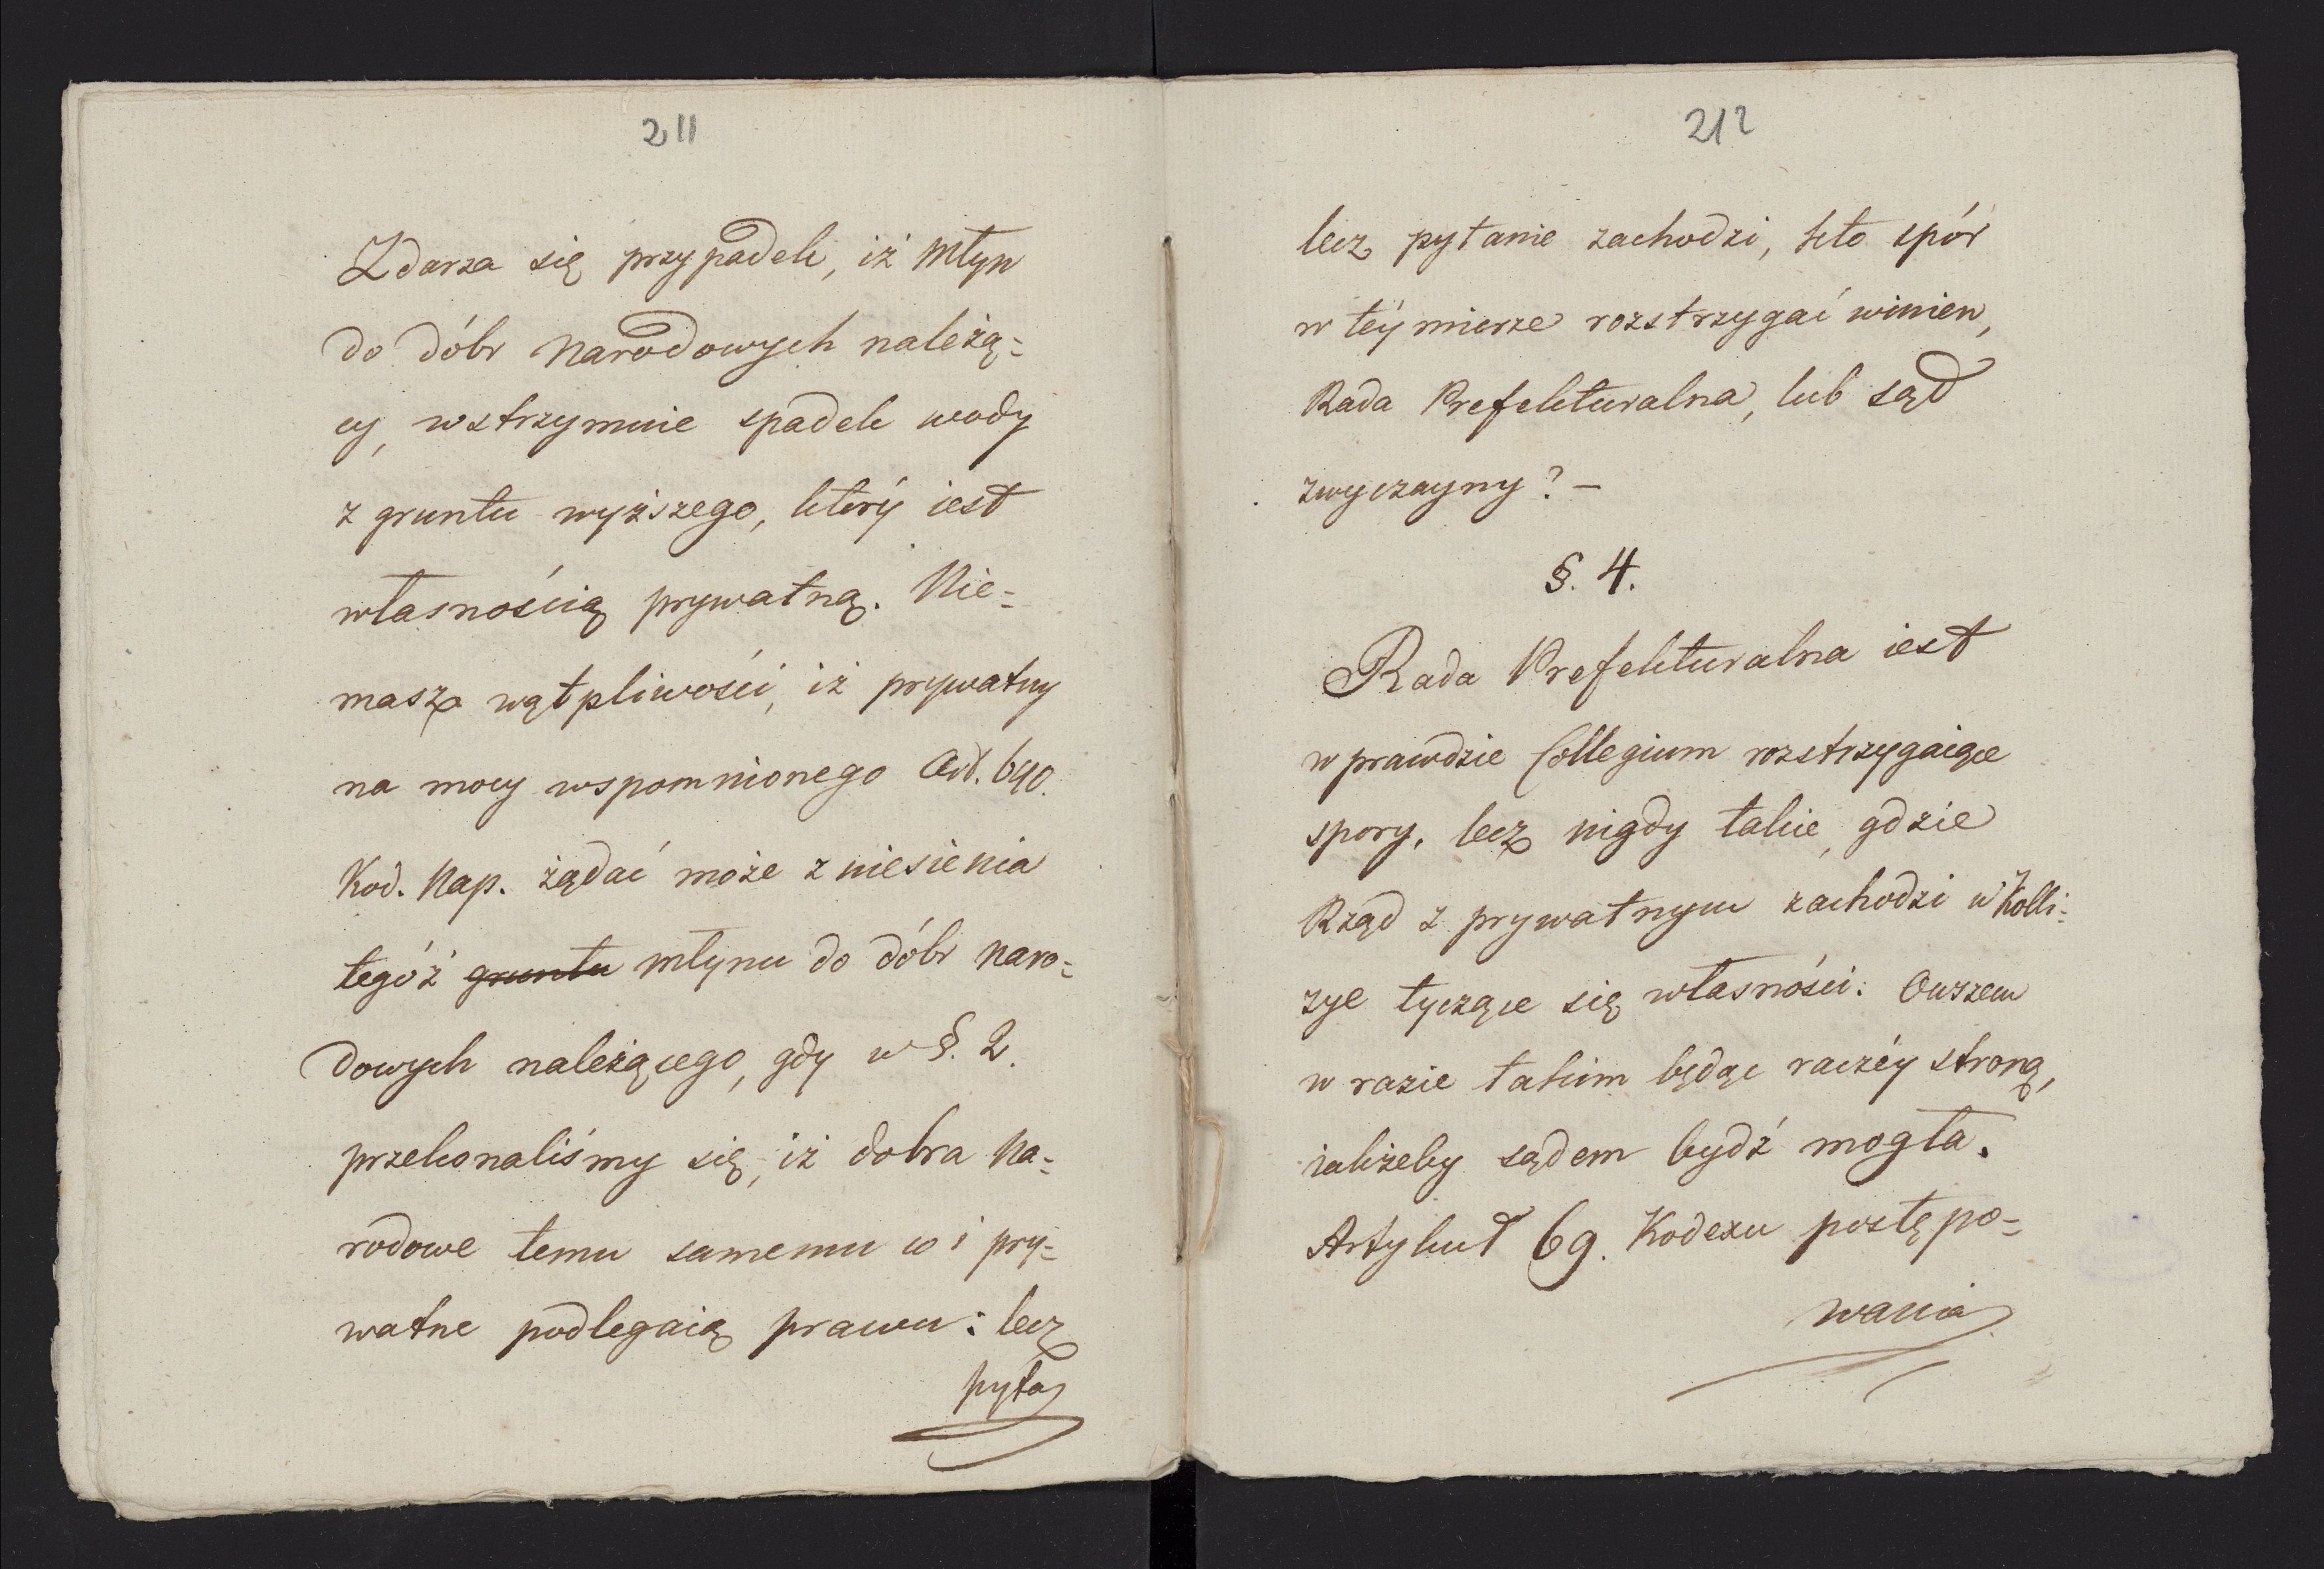 211
Zdarza się przypadek, iż Młyn
do dóbr Narodowych należą=
cy, wstrzymuie spadek wody
z gruntu wyższego, który iest
własnością prywatną. Nie=
masz wątpliwości, iż prywatny
na mocy wspomnionego Art. 640.
Kod. Nap. żądać może zniesienia
tegóż gruntu młynu do dóbr Naro=
dowych należącego, gdy w §. 2.
przekonaliśmy się, iż dobra Na=
rodowe temu samemu co i pry=
watne podlegaią prawu: lecz
pyta
212
lecz pytanie zachodzi, kto spór
w téy mierze rozstrzygać winien,
Rada Prefekturalna, lub sąd
zwyczayny? –
§. 4.
Rada Prefekturalna iest
wprawdzie Collegium rozstrzygaiące
spory, lecz nigdy takie, gdzie
Rząd z prywatnym zachodzi w Kolli=
zye tyczące się własności: Owszem
w razie takim będąc raczéy stroną,
iakżeby sądem bydź mogła.
Artykuł 69. Kodexu postępo=
wania